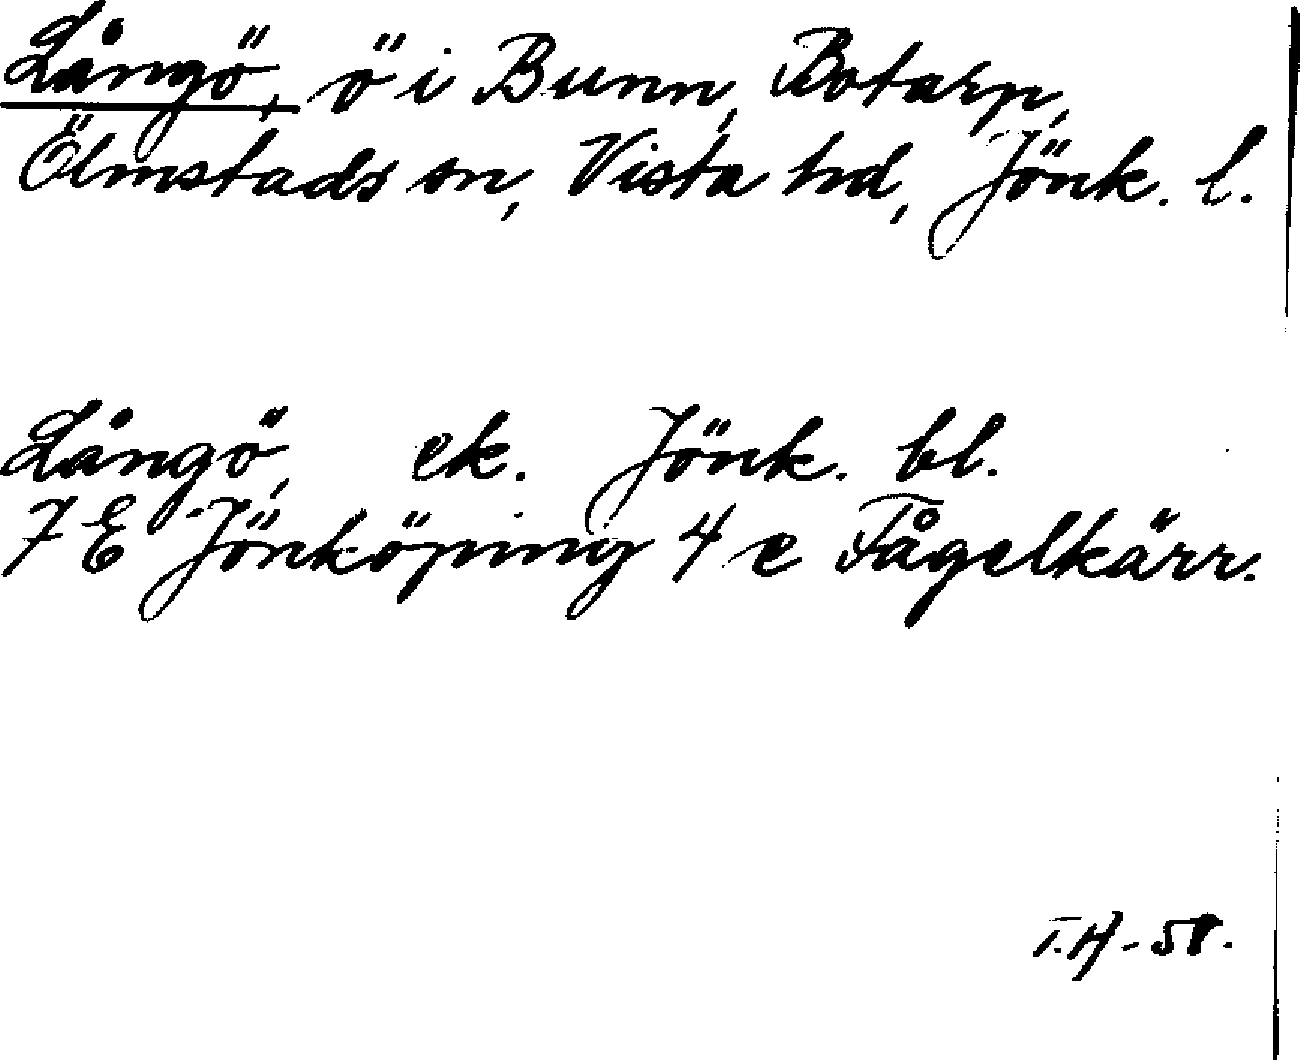 Långö, ö i Bunn, Botarp,
Ölmstads sn, Vista hd, Jönk. l.
Långö, ek. Jönk. bl.
7 E Jönköping 4 e Fågelkärr.
T.H-58.